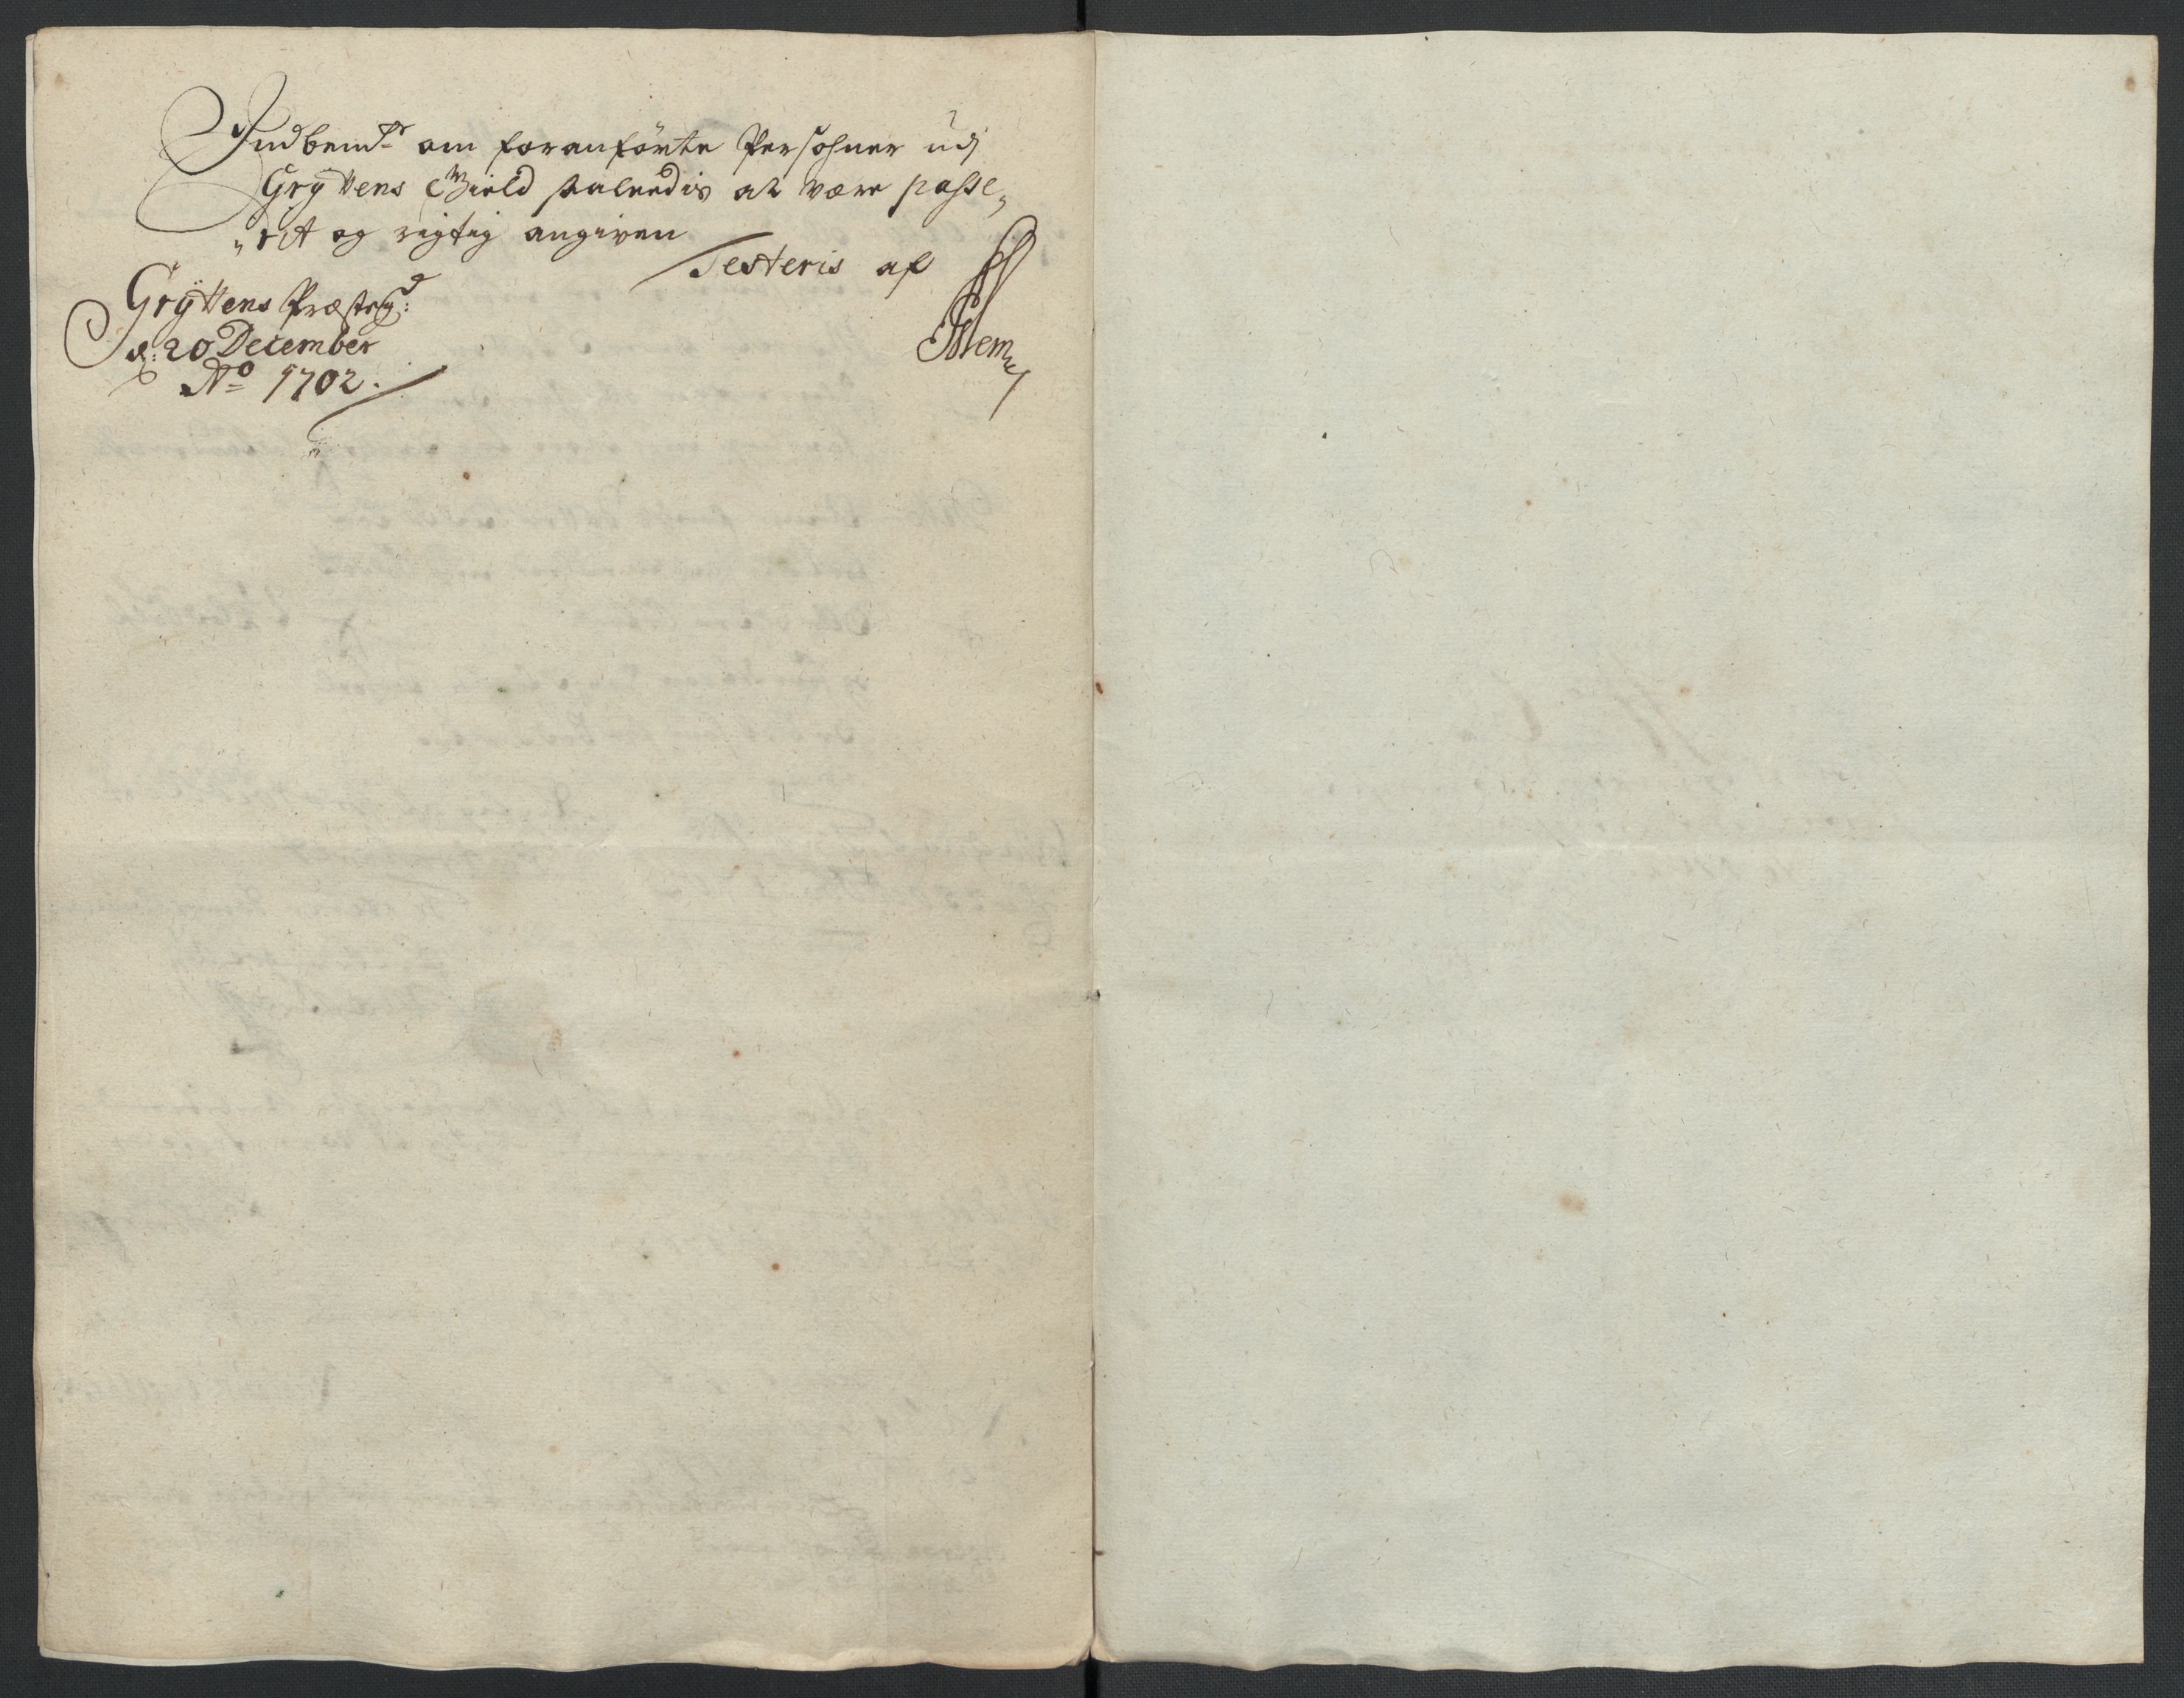 Indbemte om foranförte Persohner udj
Gryttens Gield saaledis at være passe„
„rit og rigtig angiven
Testeris af
Gryttens Præsteg:d
d: 20 December
Ao 1702.